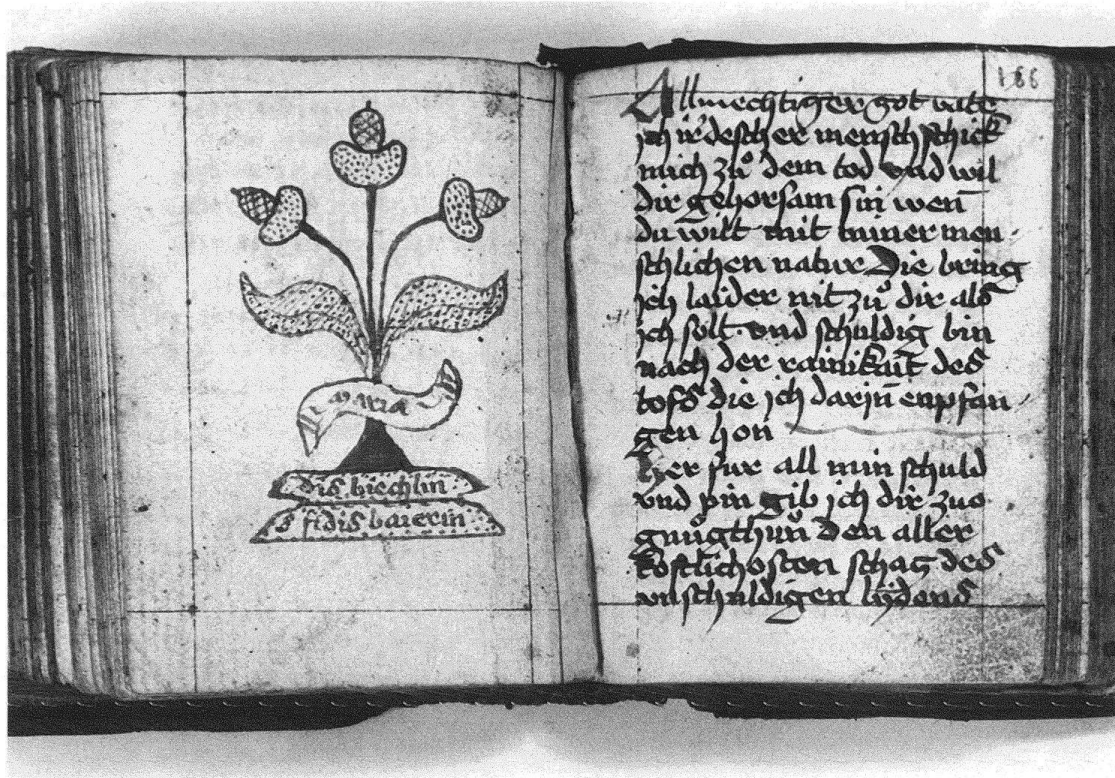 maria
dis biechlin
s fidis baierin
166
Allmechtiger got vate
ich ir̅descher mensch schick
mich zuͦ dem tod vnd wil
dir gehorsam sin wen̅
du wilt mit miner men
schlichen natur Die bring
ich laider nit zuͦ dir als
ich solt vnd schuldig bin
nach der rainikait des
tofs die ich darjn̅ enpfan
gen hon
Her fur all min schuld
vnd pin gib ich dir zuo
gnuͦgthun̅ den aller
kostlichosten schatz des
vnschuldigen lydens